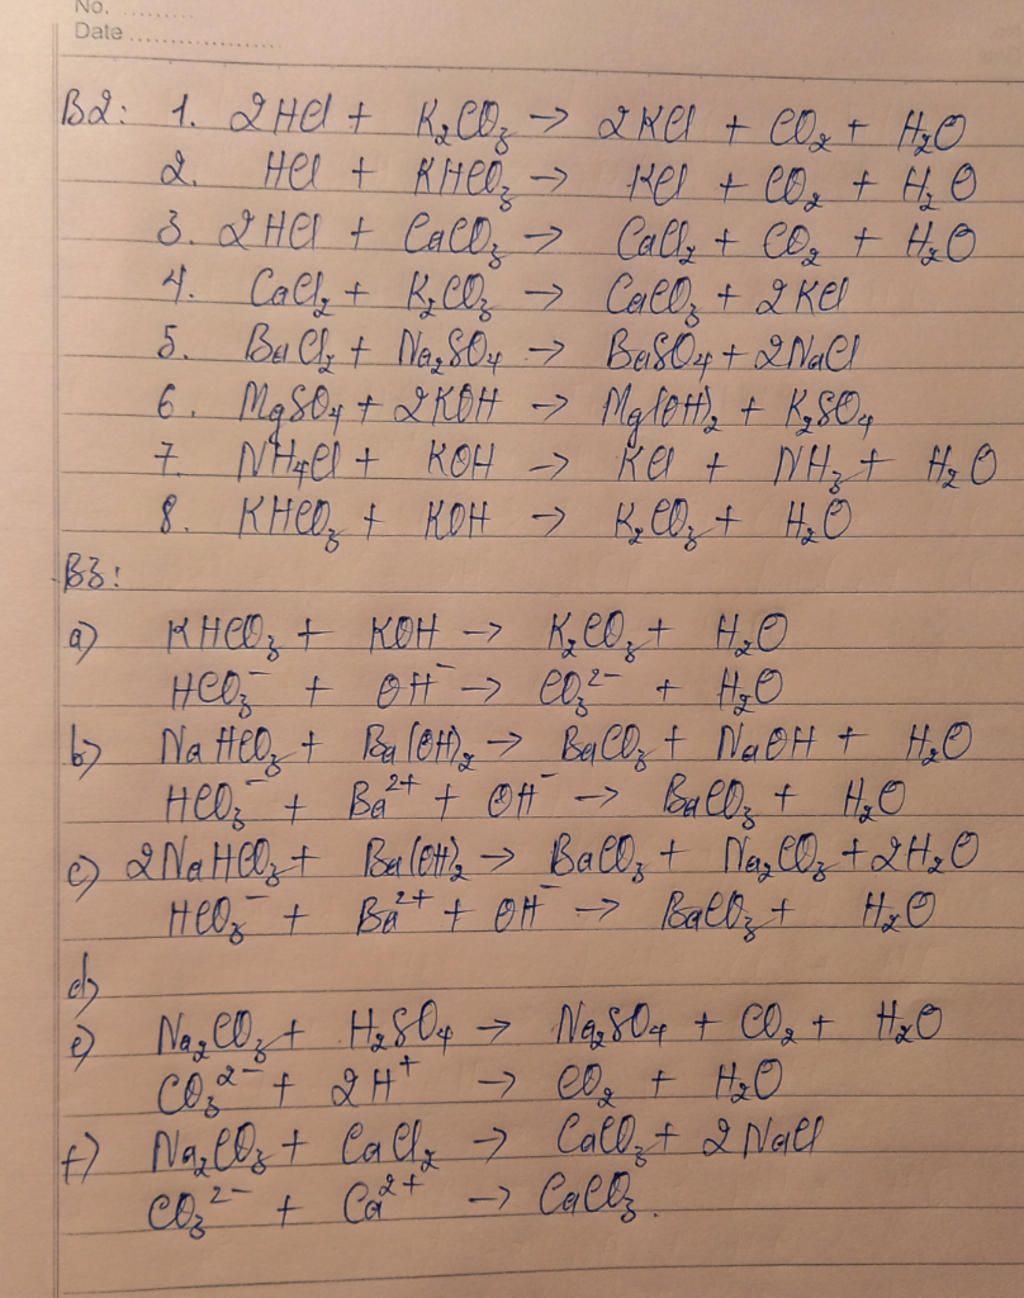 No. ..........
Date ......................
B2: 1. 2HCl + K₂CO₃ → 2KCl + CO₂ + H₂O
2. HCl + KHCO₃ → KCl + CO₂ + H₂O
3. 2HCl + CaCO₃ → CaCl₂ + CO₂ + H₂O
4. CaCl₂ + K₂CO₃ → CaCO₃ + 2KCl
5. BaCl₂ + Na₂SO₄ → BaSO₄ + 2NaCl
6. MgSO₄ + 2KOH → Mg(OH)₂ + K₂SO₄
7. NH₄Cl + KOH → KCl + NH₃ + H₂O
8. KHCO₃ + KOH → K₂CO₃ + H₂O
B3:
a) KHCO₃ + KOH → K₂CO₃ + H₂O
HCO₃⁻ + OH⁻ → CO₃²⁻ + H₂O
b) NaHCO₃ + Ba(OH)₂ → BaCO₃ + NaOH + H₂O
HCO₃⁻ + Ba²⁺ + OH⁻ → BaCO₃ + H₂O
c) 2NaHCO₃ + Ba(OH)₂ → BaCO₃ + Na₂CO₃ + 2H₂O
HCO₃⁻ + Ba²⁺ + OH⁻ → BaCO₃ + H₂O
d)
e) Na₂CO₃ + H₂SO₄ → Na₂SO₄ + CO₂ + H₂O
CO₃²⁻ + 2H⁺ → CO₂ + H₂O
f) Na₂CO₃ + CaCl₂ → CaCO₃ + 2NaCl
CO₃²⁻ + Ca²⁺ → CaCO₃.